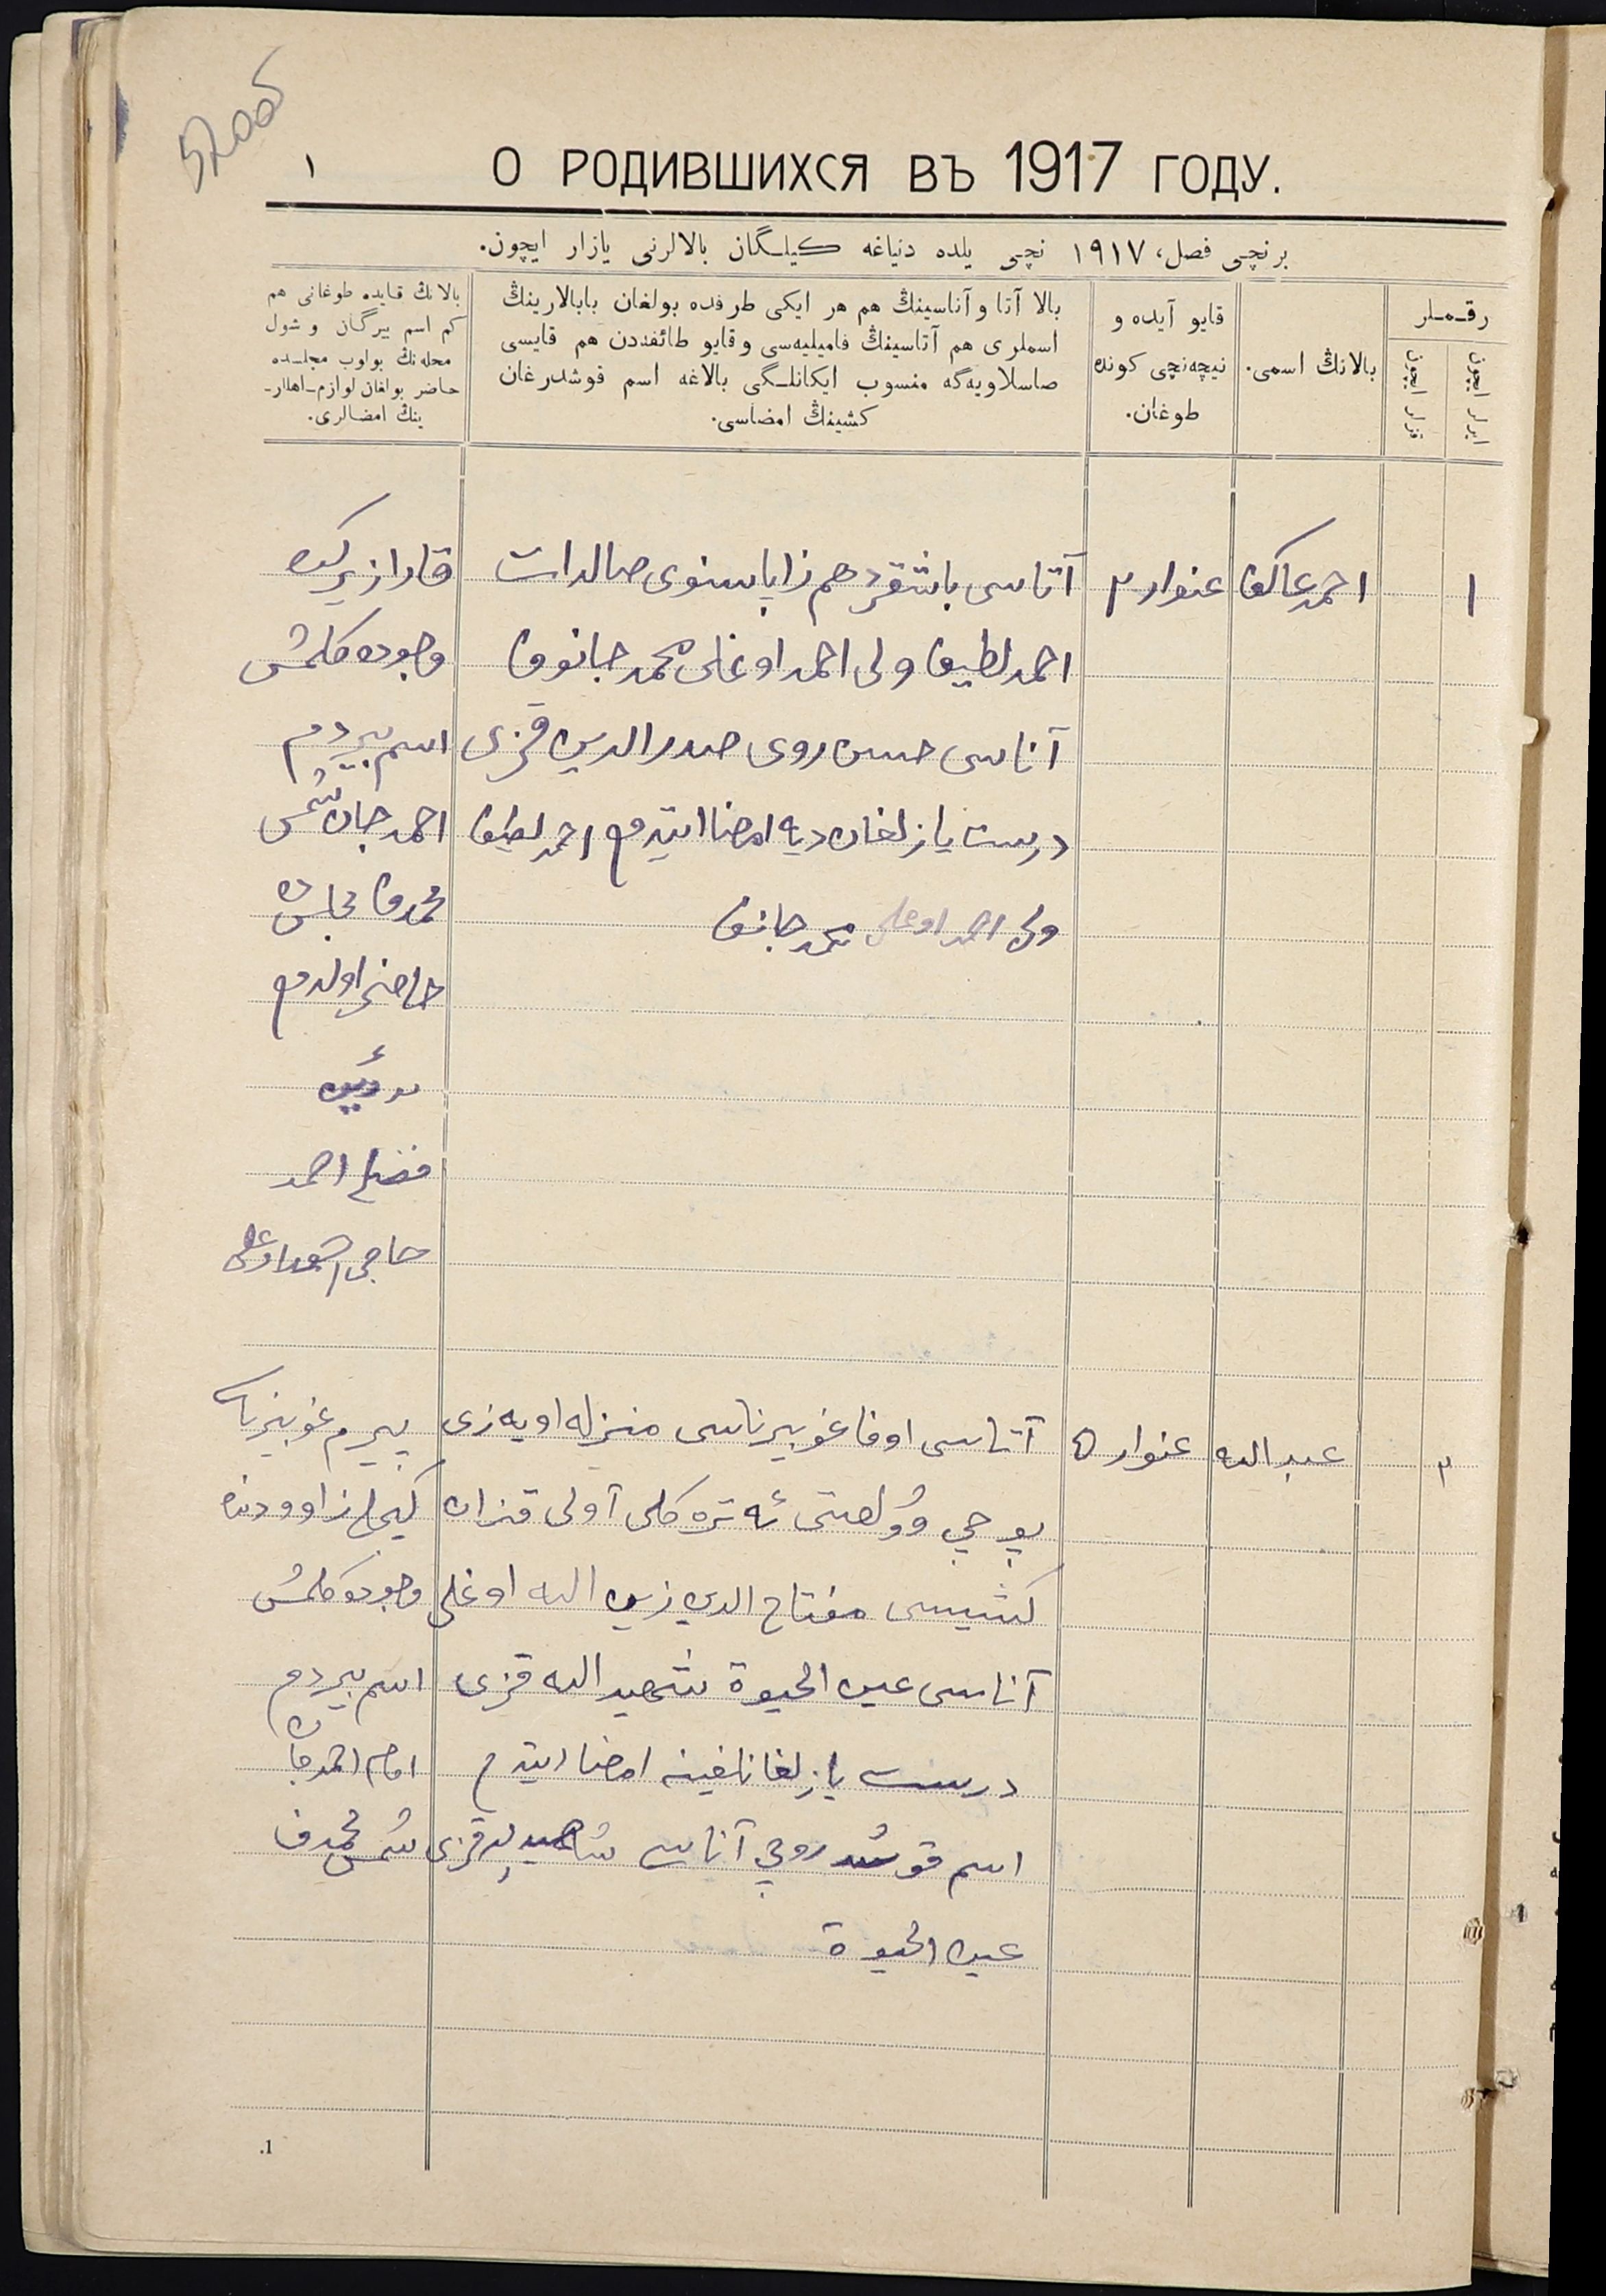 52005
١
О РОДИВШИХСЯ ВЪ 1917 ГОДУ.
برنچی فصل، ١٩١٧ نچی یلده دنیاغه کیلـگان بالالرنی یازار ایچون.
رقـمـلر
ایرلر ایچون
قزلر ایچون
بالانڭ اسمی.
قایو آیده و
نیچەنچی کونده
طوغان.
بالا آتا و آناسینڭ هم هر ایکی طرفده بولغان بابالارینڭ
اسملری هم آتاسینڭ فامیلیەسی و قایو طائفەدن هم قایسی
صاسلاویەگه منسوب ایکانلـگی بالاغه اسم قوشدرغان
کشینڭ امضاسی.
بالانڭ قایده طوغانی هم
کم اسم بیرگان و شول
محلەنڭ بولوب مجلـسده
حاضر بولغان لوازم-اهللر-
ینڭ امضالری.
١
احمد عاکف
عنوار ٢
آتاسی باشقرد هم زاپاسنوی صالدات
احمد لطیف ولی احمد اوغلی محمدجانوف
آناسی حسن روی صدرالدین قزی
درست یازلغان دیه امضا ایتدم احمد لطیف
ولی احمد اوغلی محمدجانف
وجوده کلمش
اسم بیردم
احمدجان شمس
محمدف مجلسده
حاضر اولدم
احمد
حاجی
٢
عبدالله
عنوار ٥
آتاسی اوفا غوبیرناسی منزله اویەزی
آولی قزان
کشیسی مفتاح الدین زین الله اوغلی
آناسی عین الحیوة شهید الله قزی
درست یازلغانلغینه امضا ایتدم
اسم قوشدروچی آناسی قزی
عین الحیوة
پیرم غوبیرناسی
وجوده کلمش
اسم بیردم
امام احمدجان
شمس محمدف
1.